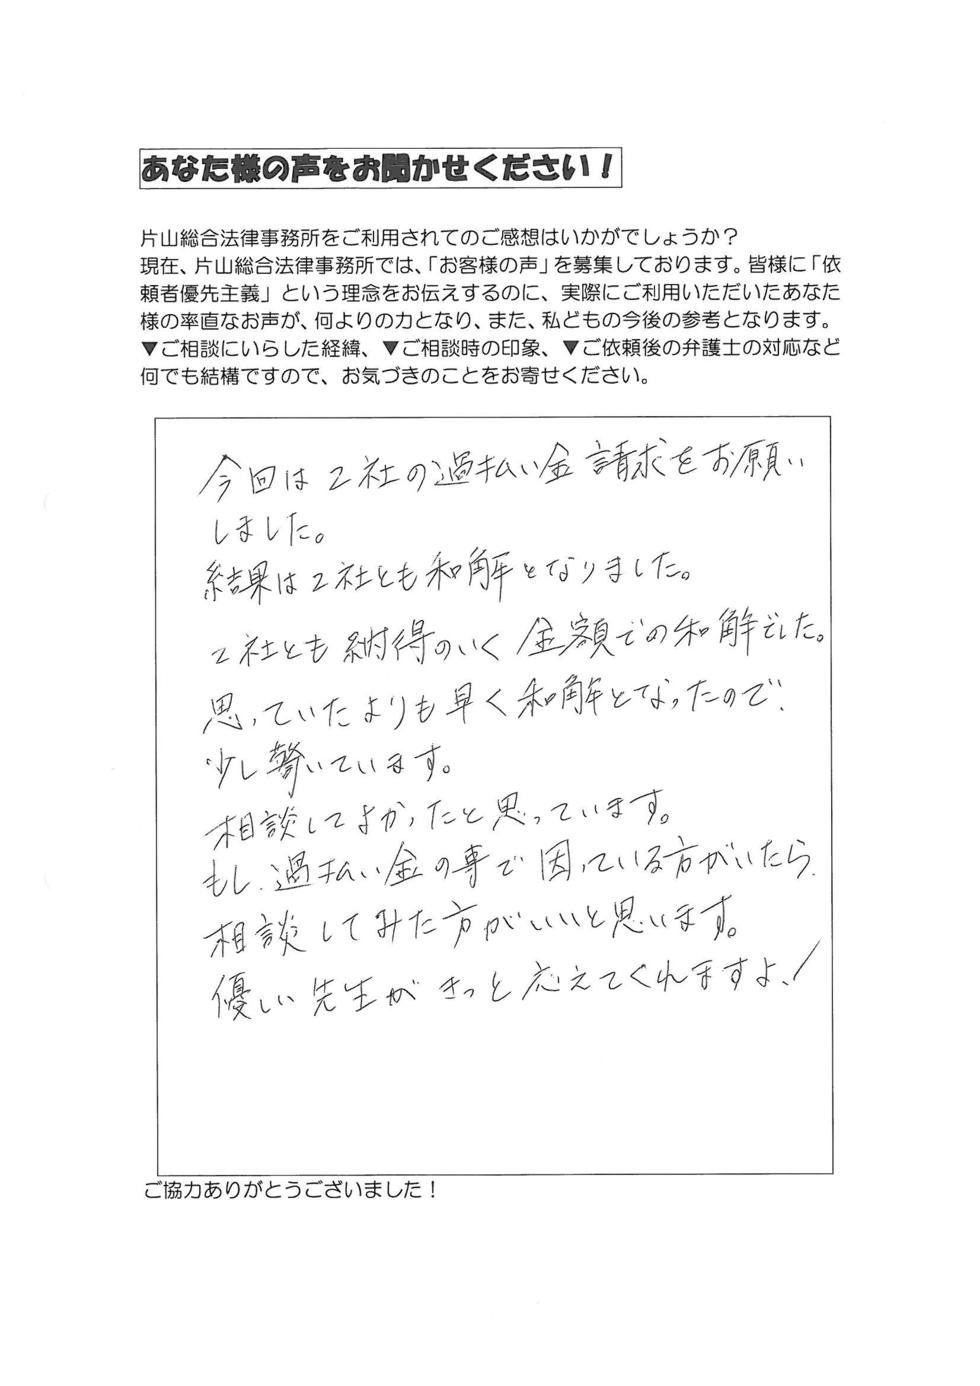 あなた様の声をお聞かせください！
片山総合法律事務所をご利用されてのご感想はいかがでしょうか？
現在、片山総合法律事務所では、「お客様の声」を募集しております。皆様に「依
頼者優先主義」という理念をお伝えするのに、実際にご利用いただいたあなた
様の率直なお声が、何よりの力となり、また、私どもの今後の参考となります。
▼ご相談にいらした経緯、▼ご相談時の印象、▼ご依頼後の弁護士の対応など
何でも結構ですので、お気づきのことをお寄せください。
今回は2社の過払い金請求をお願い
しました。
結果は2社とも和解となりました。
2社とも納得のいく金額での和解でした。
思っていたよりも早く和解となったので、
少し驚いています。
相談してよかったと思っています。
もし、過払い金の事で困っている方がいたら、
相談してみた方がいいと思います。
優しい先生がきっと応えてくれますよ！
ご協力ありがとうございました！